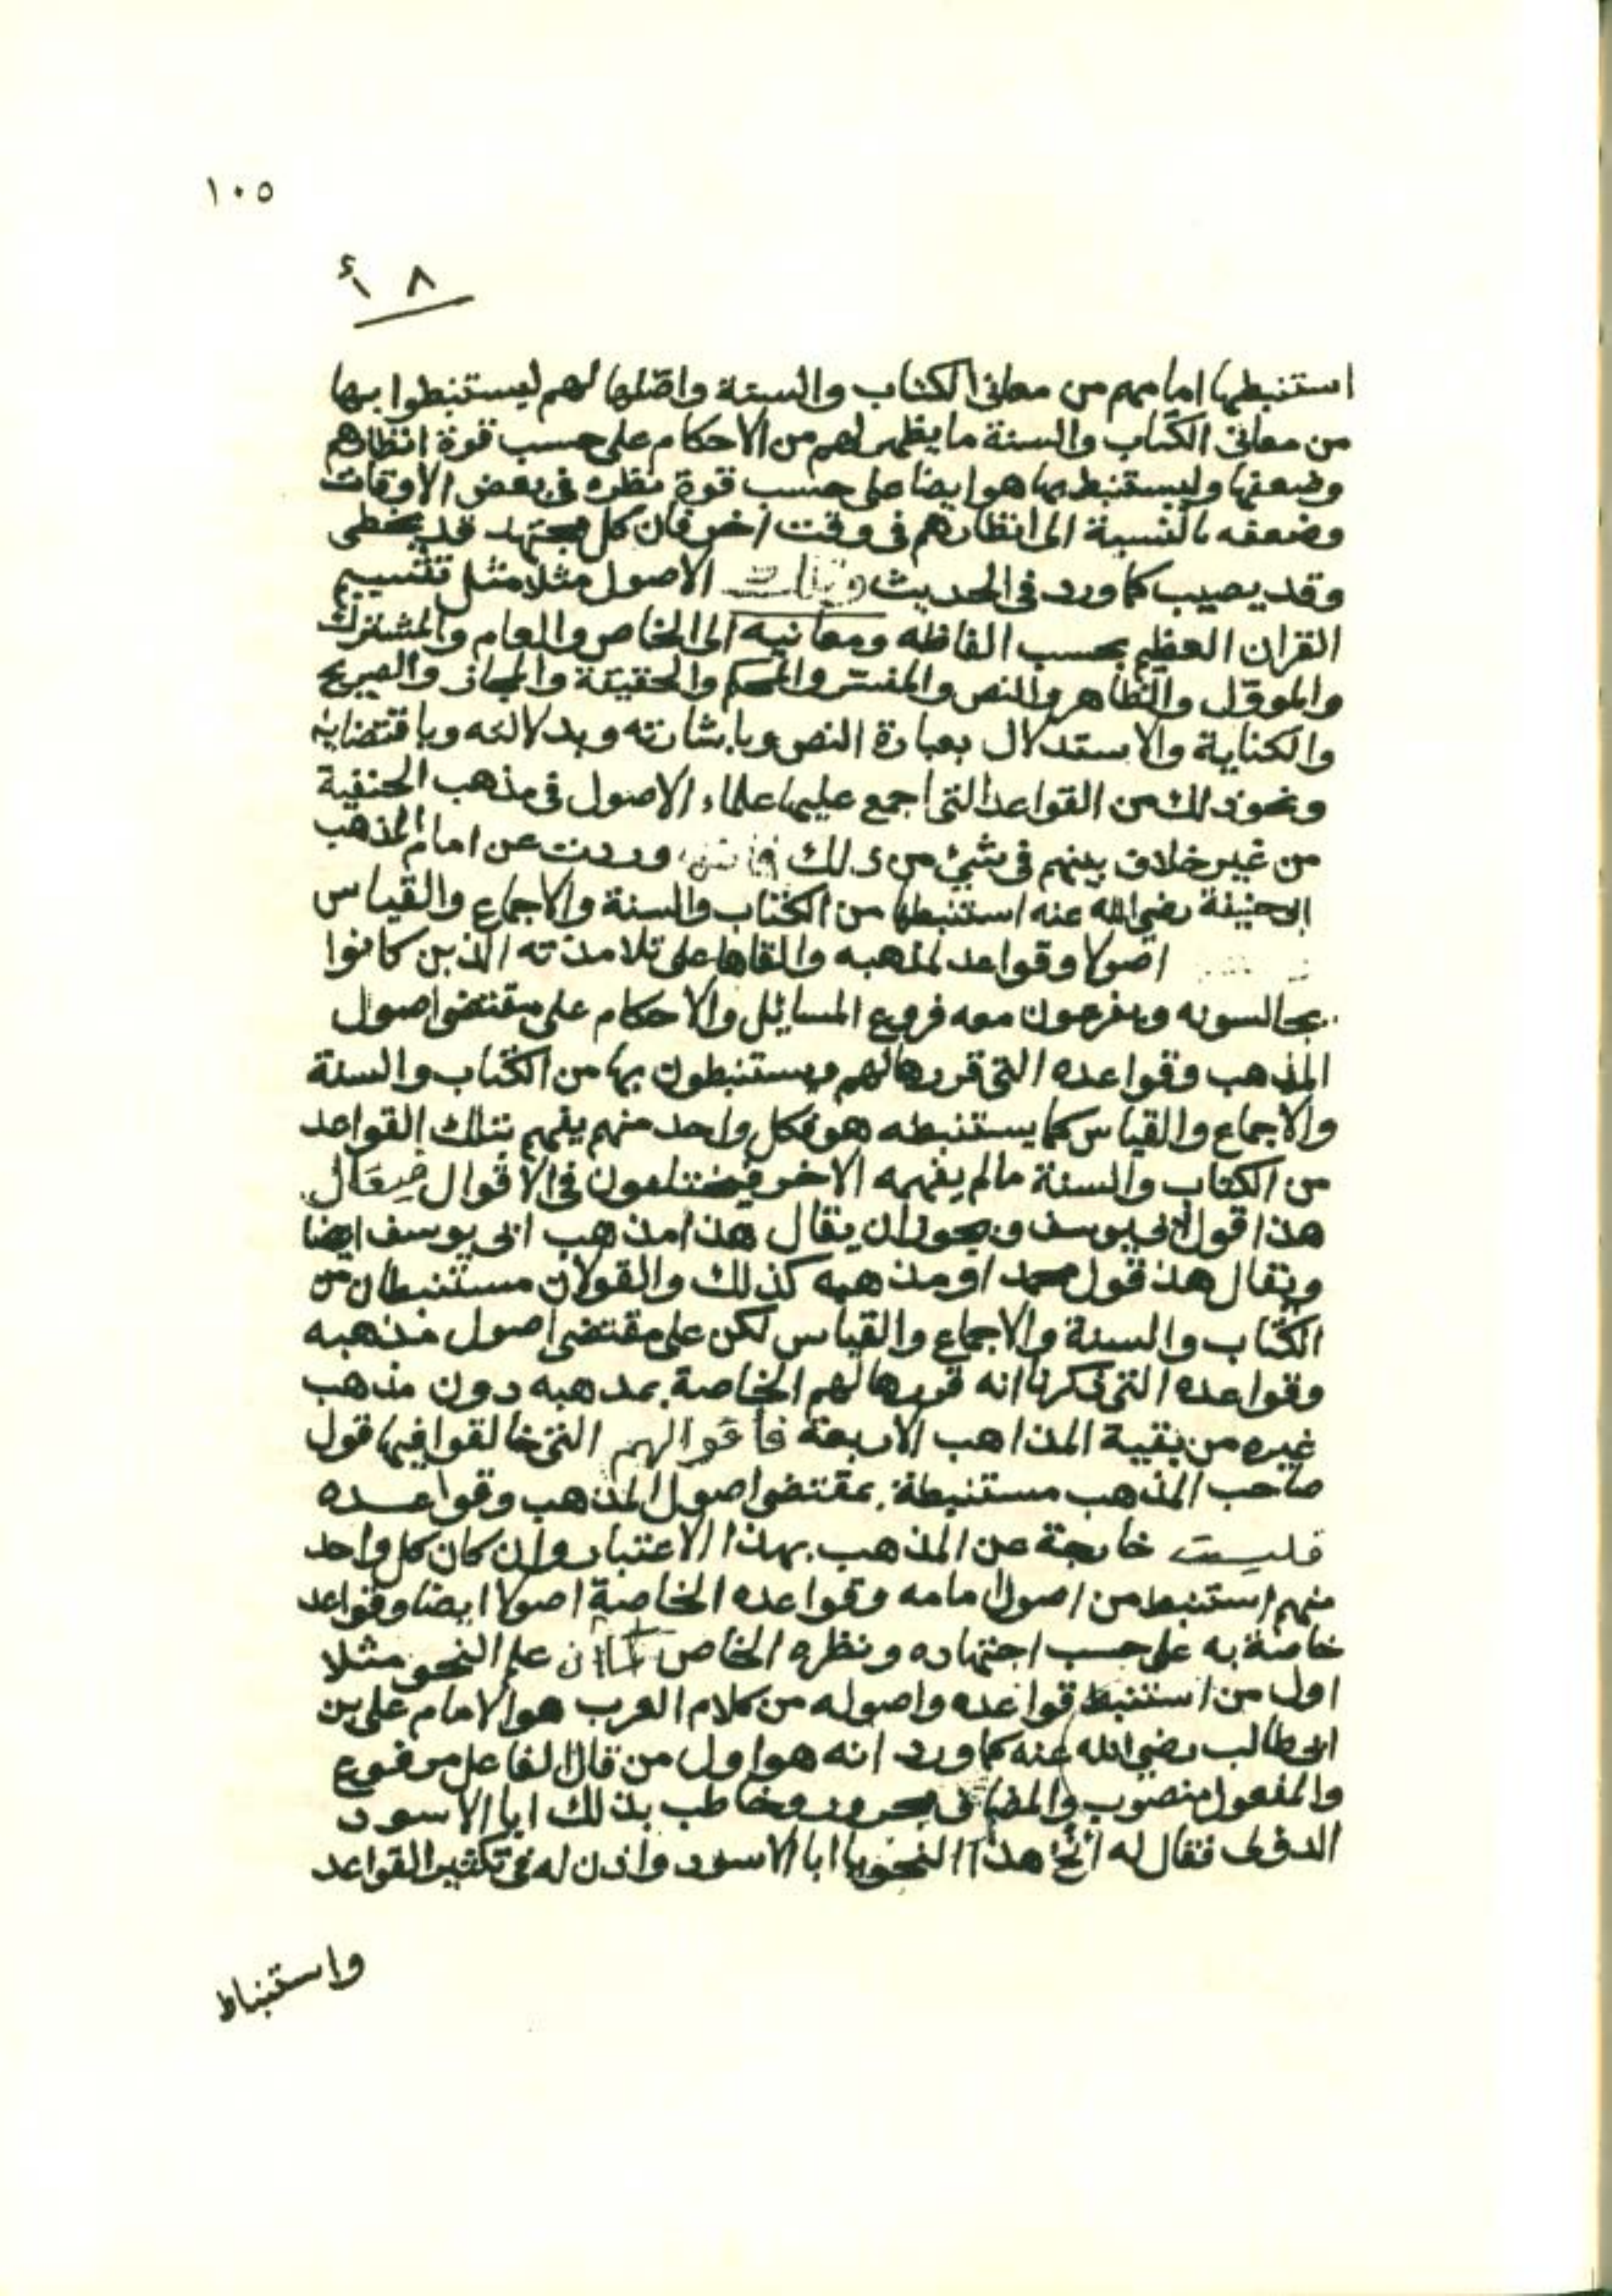 ١٠٥
٨ أ
استنبطها امامهم من معانى الكتاب والسنة واصّلها لهم ليستنبطوا بها
من معانى الكتاب والسنة ما يظهر لهم من الاحكام على حسب قوة انظارهم
وضعفها وليستنبط بها هو ايضا على حسب قوة نظره فى بعض الاوقات
وضعفه بالنسبة الى انظارهم فى وقت اخر فان كل مجتهد قد يخطى
وقد يصيب كما ورد فى الحديث الاصول مثلا مثل تقسيم
القران العظيم بحسب الفاظه ومعانيه الى الخاص والعام والمشترك
والمووّل والظاهر والنص والمفسّر والمحكم والحقيقة والمجاز والصريح
والكناية والاستدلال بعبارة النص وباشارته وبدلالته وباقتضايه
ونحو ذلك من القواعد التى اجمع عليها علماء الاصول فى مذهب الحنفية
من غير خلاف بينهم فى شئ من ذلك وردت عن امام المذهب
ابى حنيفة رضى الله عنه استنبطها من الكتاب والسنة والاجماع والقياس
اصولا وقواعد لمذهبه والقاها على تلامذته الذين كانوا
يجالسونه ويفرعون معه فروع المسايل والاحكام على مقتضى اصول
المذهب وقواعده التى قررها لهم ويستنبطون بها من الكتاب والسنة
والاجماع والقياس كما يستنبطه هو فكل واحد منهم يفهم بتلك القواعد
من الكتاب والسنة مالم يفهمه الاخر فيختلفون فى الاقوال فيقال
هذا قول لابى يوسف ويجوز ان يقال هذا مذهب ابى يوسف ايضا
ويقال هذ قول محمد او مذهبه كذلك والقولان مستنبطان من
الكتاب والسنة والاجماع والقياس لكن على مقتضى اصول مذهبه
وقواعده التى ذكرنا انه قررها لهم الخاصة بمذهبه دون مذهب
غيره من بقية المذاهب الاربعة فأقوالهم التى خالفوا فيها قول
صاحب المذهب مستنبطة بمقتضى اصول المذهب وقواعده
فليست خارجة عن المذهب بهذا الاعتبار وان كان كل واحد
منهم استنبط من اصول امامه وقواعده الخاصة اصولا ايضا وقواعد
خاصة به على حسب اجتهاده ونظره الخاص كما ان علم النحو مثلا
اول من استنبط قواعده واصوله من كلام العرب هو الامام على بن
ابى طالب رضى الله عنه كما ورد انه هو اول من قال الفاعل مرفوع
والمفعول منصوب والمضاف مجرور وخاطب بذلك ابا الاسود
الدؤلى فقال له أنح هذا النحو يا ابا الاسود واذن له فى تكثير القواعد
واستنباط